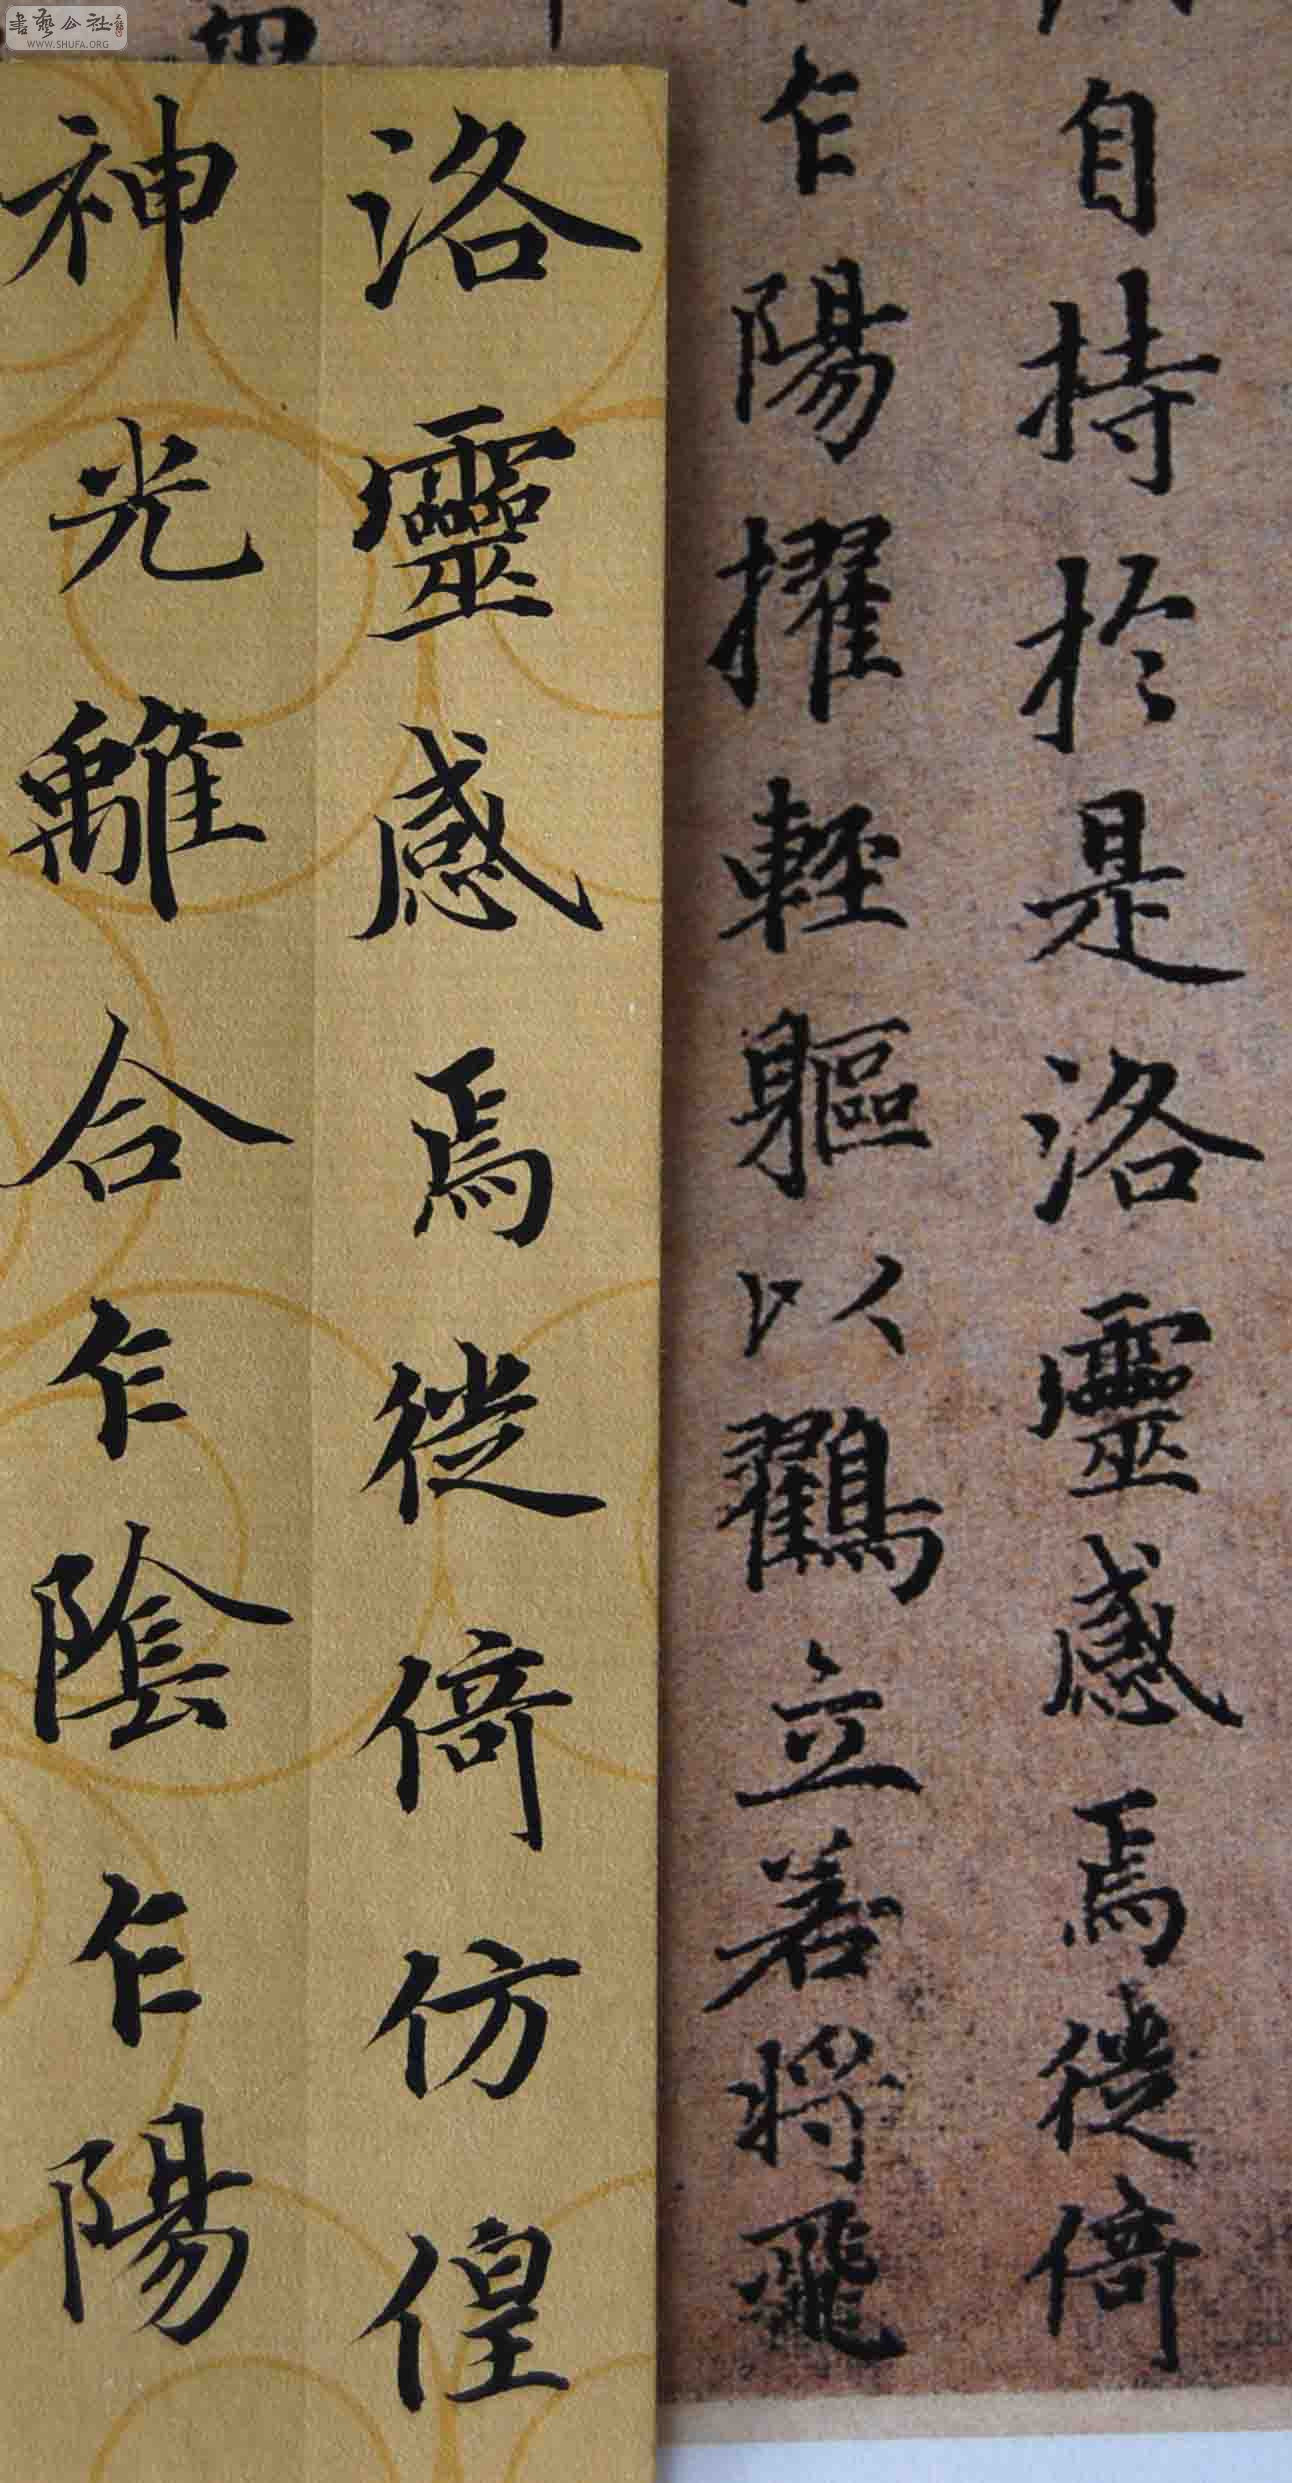 自持於是洛靈感焉徙倚
乍陽擢輕軀以鸖立若將飛
洛靈感焉徙倚仿偟
神光離合乍陰乍陽
書藝公社
WWW.SHUFA.ORG